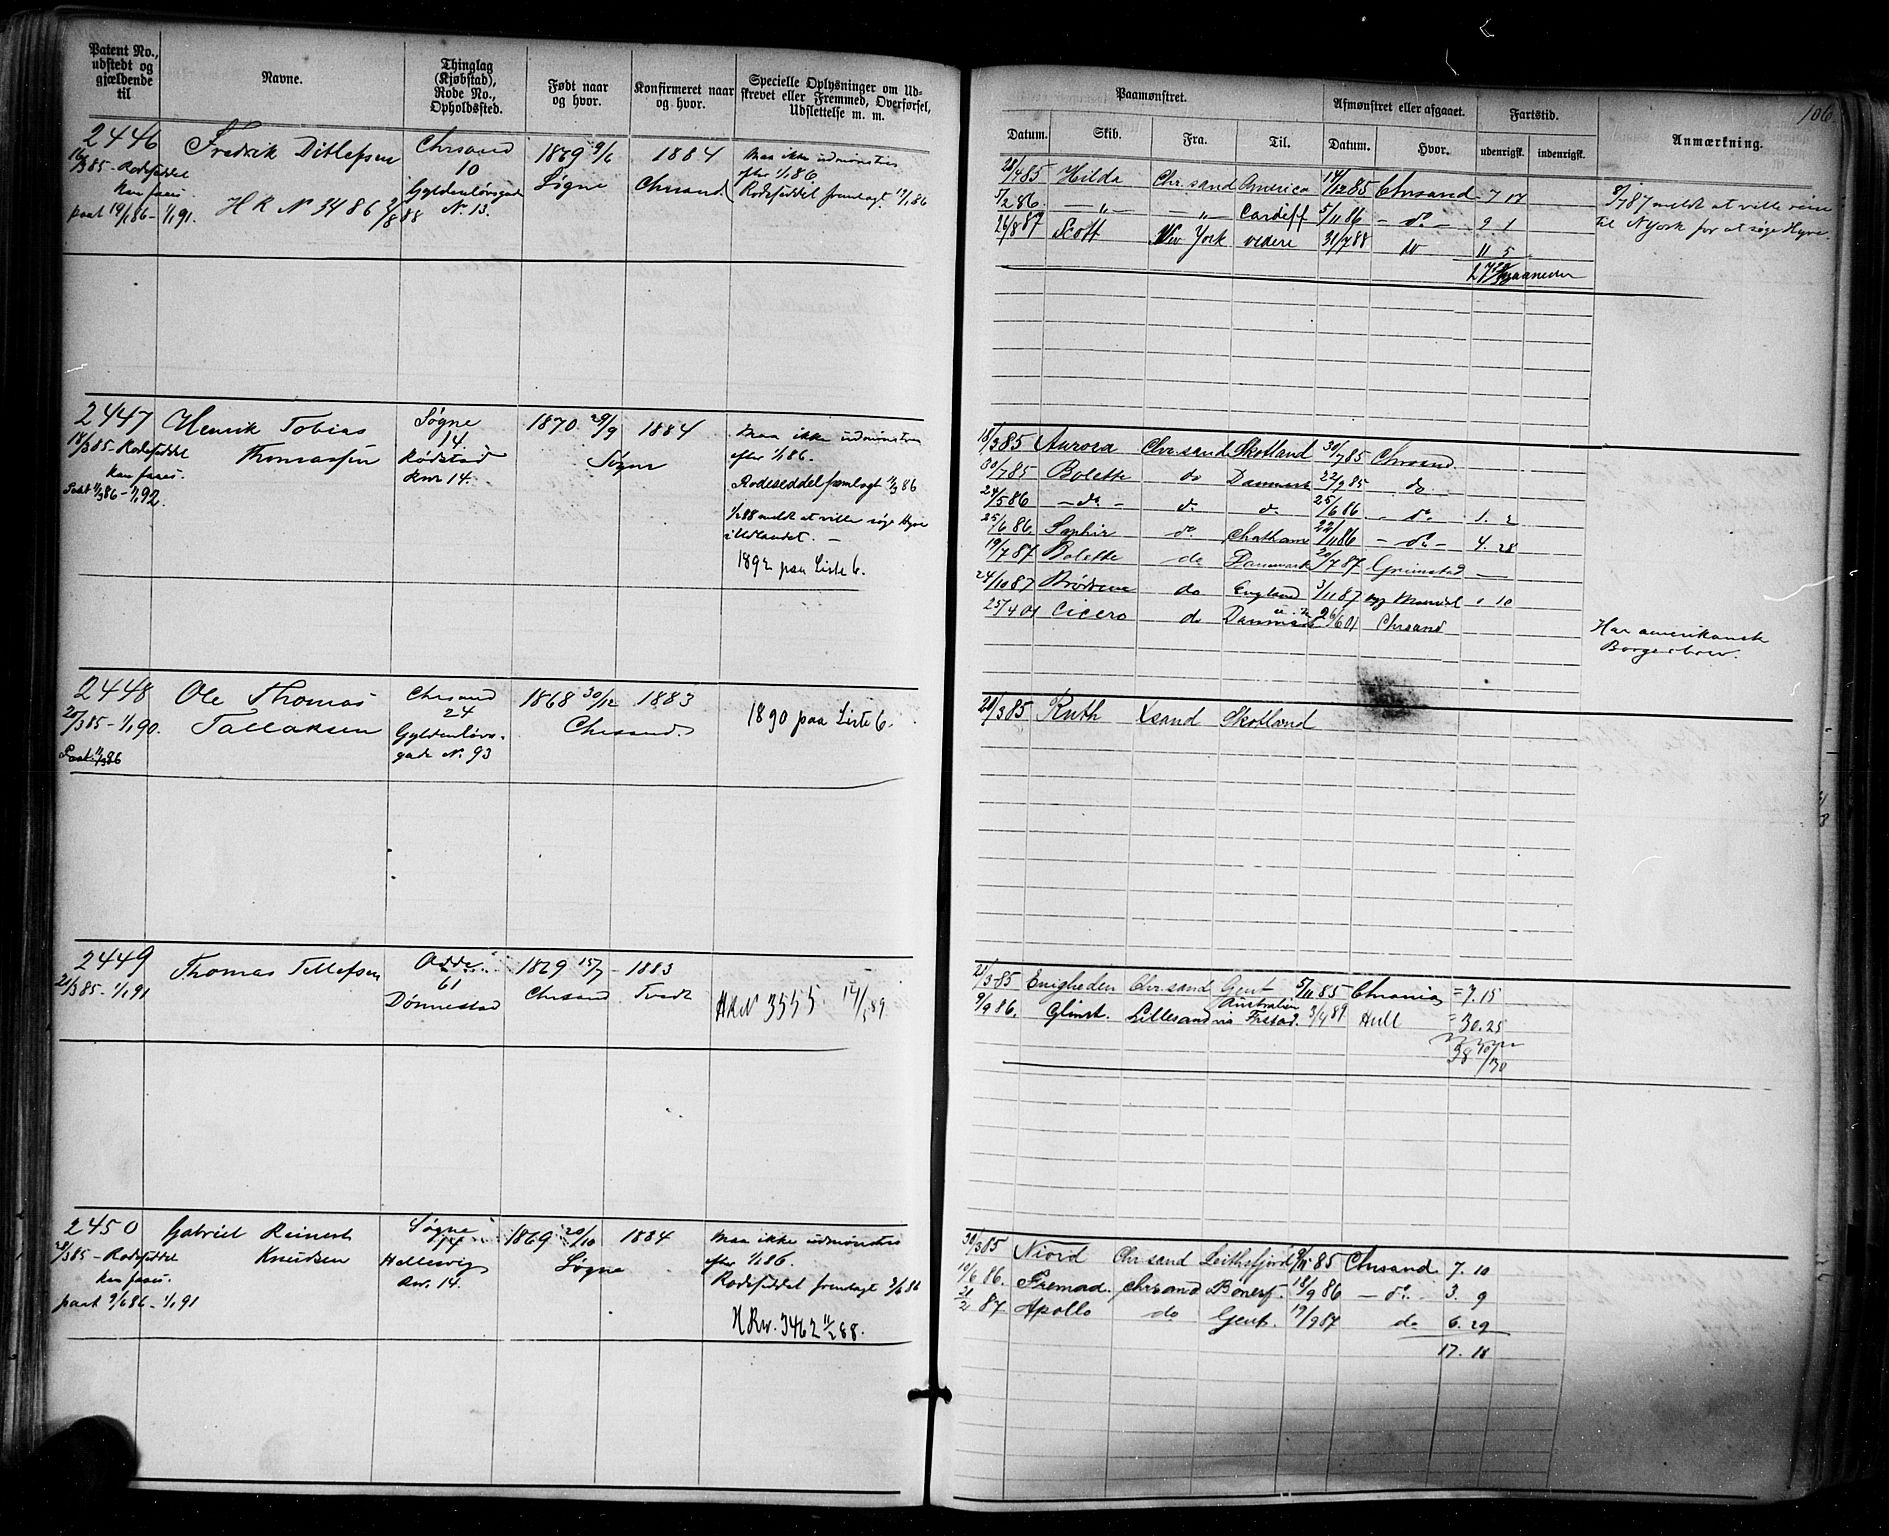 Patent No., udstedt og gjældende til
Navne.
Thinglag (Kjøbstad), Rode No., Opholdssted.
Født naar og hvor.
Konfirmeret naar og hvor.
Specielle Oplysninger om Udskrevet eller Fremmed, Overførsel, Udslettelse m. m.
2446
16/3 85 - Rodeseddel
kan faaes
paat 19/1 86 - 1/1 91.
Fredrik Ditlefsen
H R No 3486 3/8 88
Chrsand
10
Gyldenløvsgade
No 13.
1869 9/6
Søgne
1884
Chrsand
Maa ikke udmønstres
efter 1/1 86
Rodeseddel fremlagt 19/1 86
2447
18/3 85 - Rodeseddel
kan faaes.
Paat 11/3 86 - 1/1 92.
Henrik Tobias
Thomassen
Søgne
14
Rødstad
Rnr 14.
1870 29/9
Søgne
1884
Maa ikke udmønstres
efter 1/1 86.
Rodeseddel fremlagt 11/3 86
1/2 88 meldt at ville søge Hyre
i Udlandet. -
1892 paa Liste 6.
2448
20/3 85 - 1/1 90.
Paat 11/3 86
Ole Thomas
Tallaksen
Chrsand
24
Gyldenløvs-
gade No. 93
1868 30/12
Chrsand.
1883
1890 paa Liste 6.
2449
21/3 85 - 1/1 91
Thomas Tellefsen
Odde
61
Dønnestad
1869 15/7
Chrsand
1883
Tveit
HRN 3555
2450
28/3 85 - Rodeseddel
kan faaes.
paat 9/6 86 - 1/1 91
Gabriel Reinert
Knudsen
Søgne
14
Hellesvig
Rnr. 14.
1869 20/10
Søgne
1884
Maa ikke udmønstres
efter 1/1 86.
Rodeseddel fremlagt 9/6 86
HRnr. 3462 11/2 88.
106.
Paamønstret.
Afmønstret eller afgaaet.
Fartstid.
Anmærkning.
Datum. Skib. Fra. Til. Datum. Hvor. udenrigsk. indenrigsk.
28/4 85 Hilda Chr.sand America 14/12 85 Chrsand 7 17
5/2 86 - " - - " - Cardiff 5/11 86 - do - 9 1
26/8 87 Scott New York videre 31/7 88 do 11 5
8/7 87 meldt at ville reise
til N York for at søge Hyre.
18/3 85 Aurora Chr.sand Skotland 30/7 85 Chrsand.
30/7 85 Bolette do Danmark 22/9 85 do
24/5 86 - do - do do 25/6 86 - do - 1. 2
25/6 86 Saphir do Chatham 22/11 86 - do - 4. 28
19/7 87 Bolette do Danmark 20/7 87 Grimstad -
24/10 87 do England 3/11 87 10
25/4 01 Cicero do Danmark 26/6 01 Chrsand
Har amerikansk
Borgerbrev.
20/3 85 Ruth Xsand Skotland
21/3 85 Enigheden Chr.sand Gent 5/11 85 Chrania = 7. 15
9/9 86. Glimt. Lillesand Australien 3/4 89 Hull = 30. 25
38 10/30
30/3 85 Niord Chrsand 9/11 85 Chrsand 7. 10
10/6 86. Fremad. Chrsand 18/9 86 - do - 3. 9
21/2 87 Apollo do Gent. 19/9 87 do 6. 29
17. 18